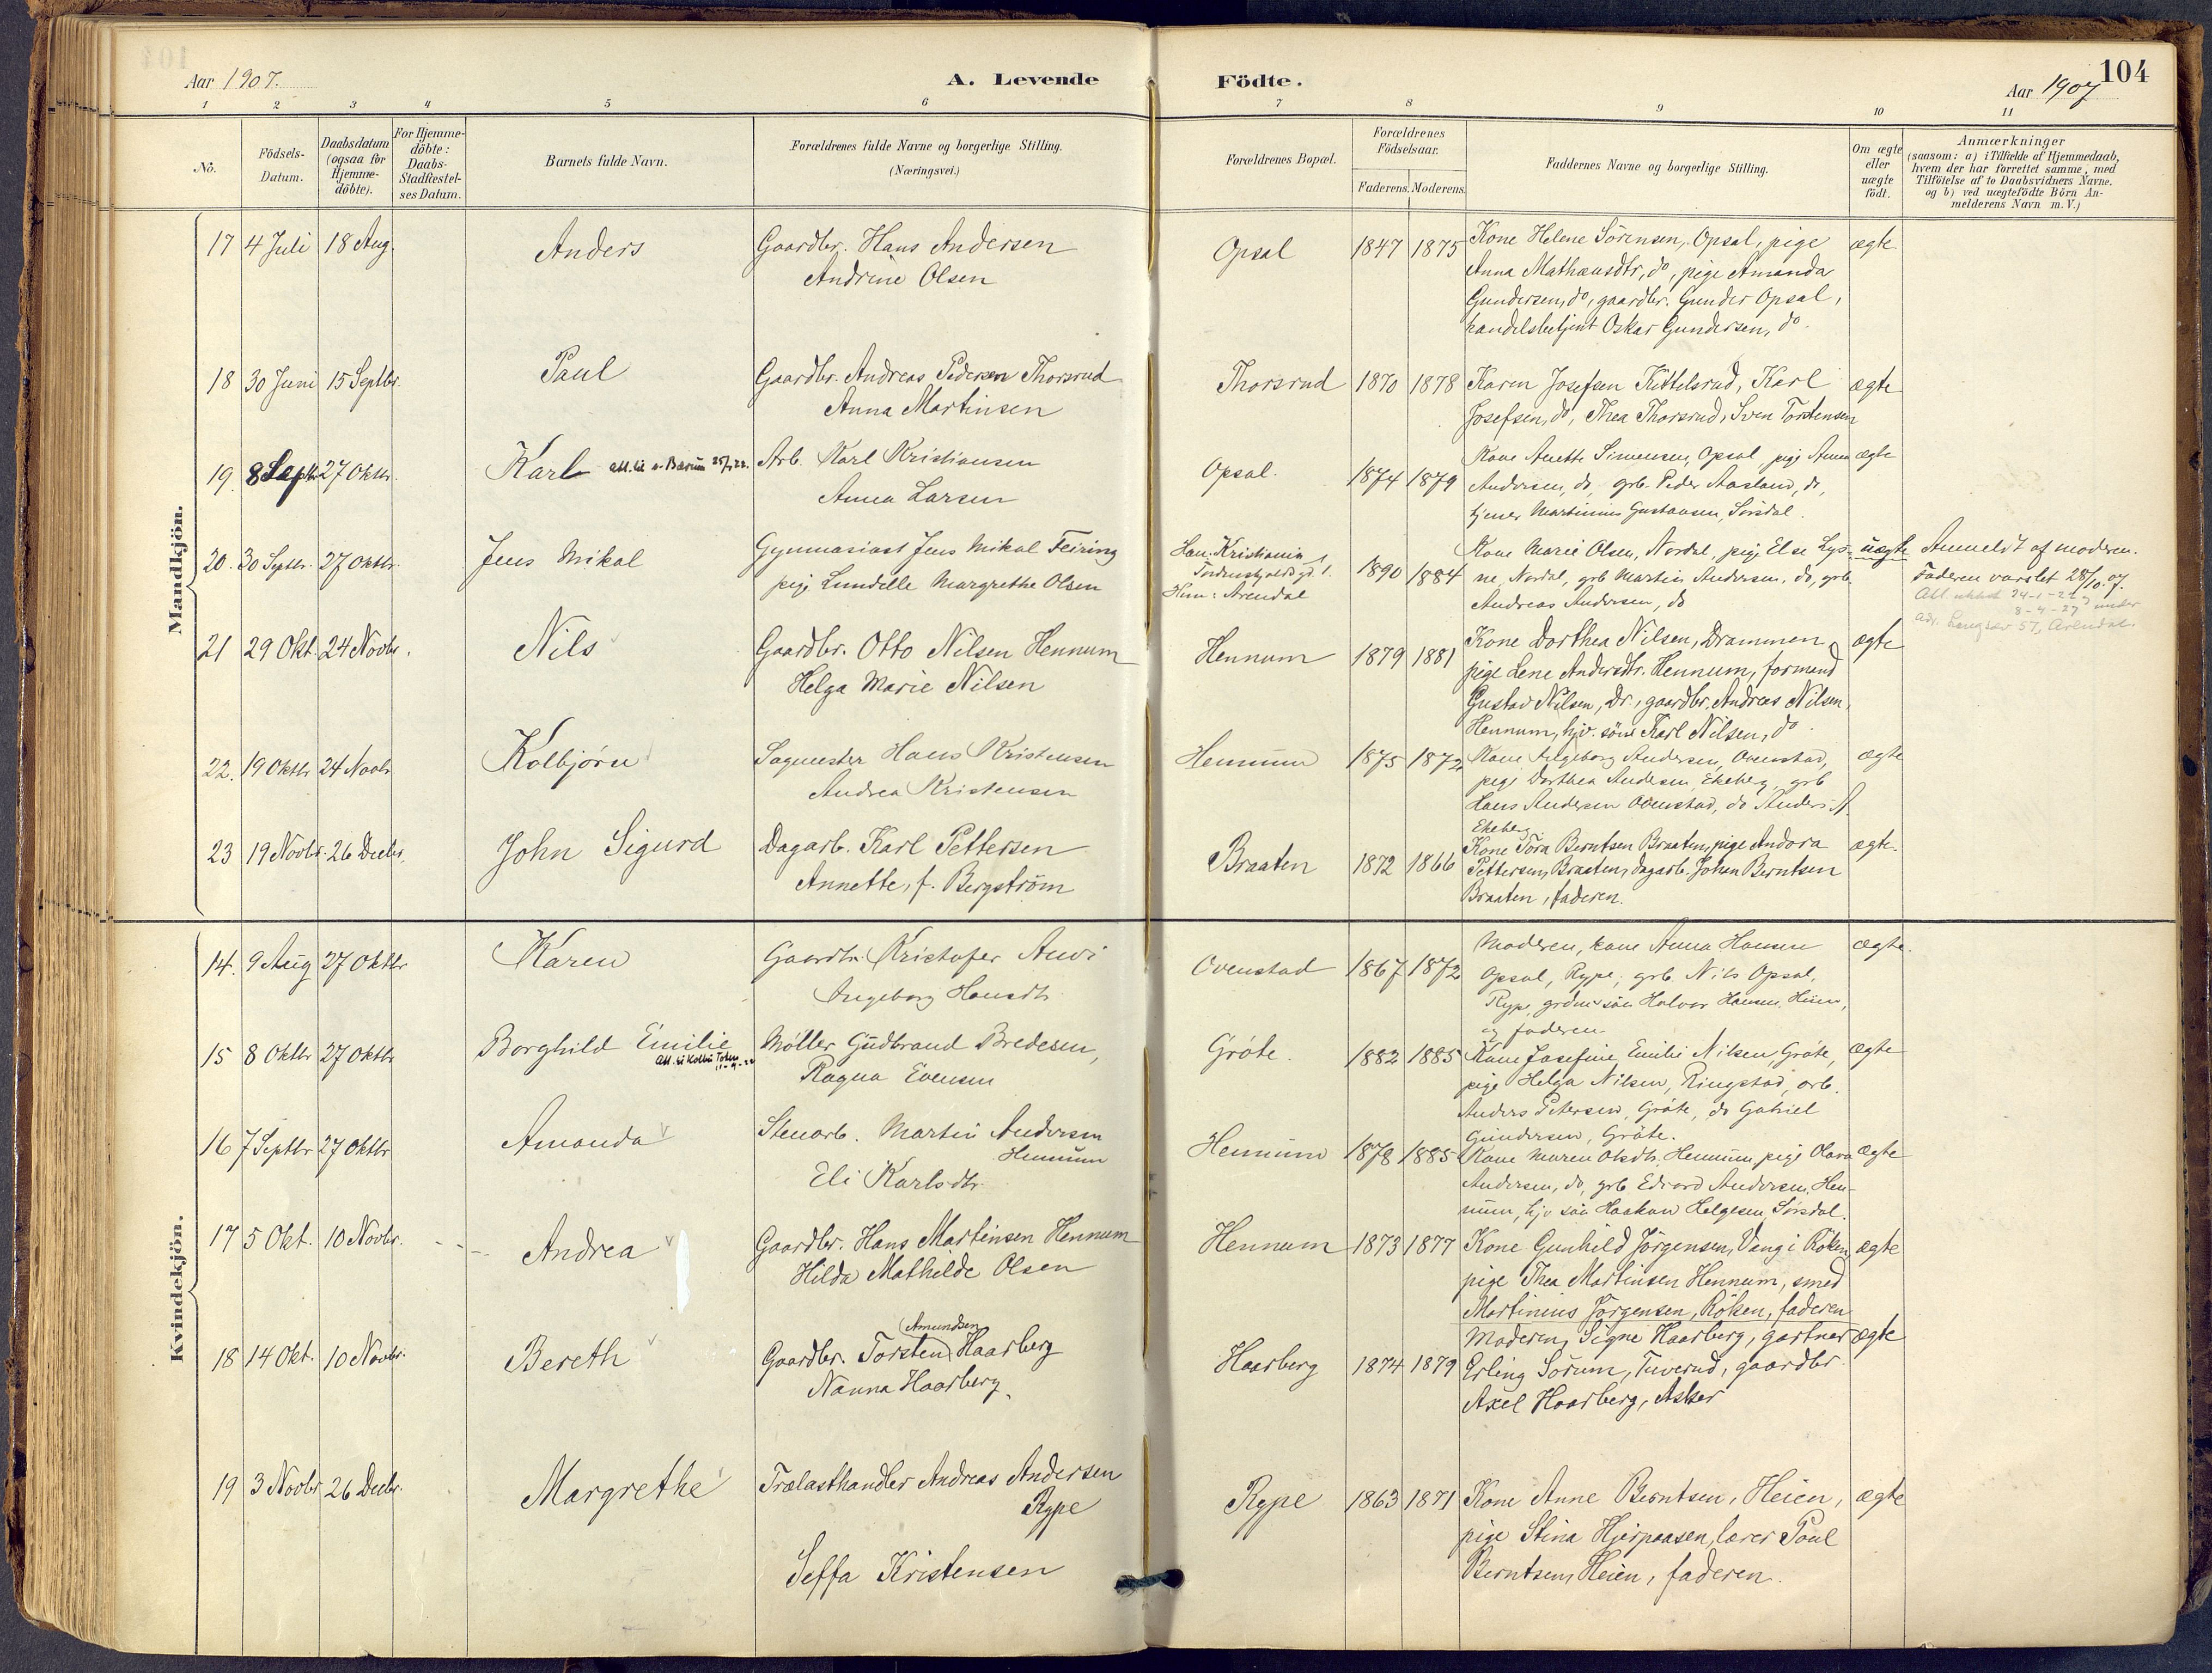 104
Aar 1907.
A. Levende Födte.
Aar 1907
1 2 3 4 5 6 7 8 9 10 11
No.
Födsels-
Datum.
Daabsdatum
(ogsaa for
Hjemme-
döbte).
For Hjemme-
döbte:
Daabs-
Stadfæstel-
ses Datum.
Barnets fulde Navn.
Forældrenes fulde Navne og borgerlige Stilling.
(Næringsvei.)
Forældrenes Bopæl.
Forældrenes
Födselsaar.
Faderens. Moderens.
Faddernes Navne og borgerlige Stilling.
Om ægte
eller
uægte
födt.
Anmærkninger
(saasom: a) i Tilfælde af Hjemmedaab,
hvem der har forrettet samme, med
Tilföielse af to Daabsvidners Navne.
og b) ved uægtefödte Börn An-
melderens Navn m. V.)
Mandkjön.
17 4 Juli 18 Aug. Anders
Gaardbr. Hans Andersen
Andrine Olsen
Opsal 1847 1875
Kone Helene Sörensen, Opsal, pige
Anna Mathæusdtr, do, pige Amanda
Gundersen, do, gaardbr. Gunder Opsal,
handelsbetjent Oskar Gundersen, do.
ægte.
18 30 Juni 15 Septbr. Paul
Gaardbr. Andreas Pedersen Thorsrud
Anna Martinsen
Thorsrud 1870 1878
Karen Josefsen Kittelsrud, Karl
Josefsen, do, Thea Thorsrud, Sven Torstensen
ægte
19. 8 Septbr 27 Oktbr. Karl
Arb. Karl Kristiansen
Anna Larsen
Opsal. 1874 1879
Kone Anette Simensen, Opsal, pige Anna
Andersen, do, grb. Peder Aasland, do,
tjener Martinius Gustavsen, Sörsdal.
ægte
20. 30 Septbr. 27 Oktbr. Jens Mikal
Gymnasiast Jens Mikal Feiring
pige Lundelle Margrethe Olsen
Han: Kristiania
Tordenskjoldsgd. 1.
Hun: Arendal
1890 1884
Kone Marie Olsen, Nordal, pige Else Lys-
ne, Nordal, grb Martin Andersen, do, grb.
Andreas Andersen, do
uægte
Anmeldt af moderen.
Faderen varslet 28/10.07.
21 29 Okt. 24 Novbr. Nils
Gaardbr. Otto Nilsen Hennum
Helga Marie Nilsen
Hennum 1879 1881
Kone Dorthea Nilsen, Drammen
pige Lene Andersdtr. Hennum, formand
Gustav Nilsen, Dr., gaardbr. Andreas Nilsen,
Hennum, hjv. sön Karl Nilsen, do
ægte
22. 19 Oktbr 24 Novbr Kolbjörn
Sagmester Hans Kristensen
Andrea Kristensen
Hennum 1875 1872
Kone Ingeborg Andersen, Ovenstad,
pige Dorthea Andersen Ekeberg, grb
Hans Andersen Ovenstad, do Anders A.
Ekeberg
ægte
23 19 Novbr. 26 Decbr. John Sigurd
Dagarb. Karl Pettersen
Annette, f. Bergström
Braaten 1872 1866
Kone Tora Berntsen Braaten, pige Andora
Pettersen, Braaten, dagarb. Johan Berntsen
Braaten, faderen.
ægte.
Kvindekjön.
14. 9 Aug 27 Oktbr Karen
Gaardbr. Kristofer
Ingeborg Hansdtr
Ovenstad 1867 1872
Moderen, kone Anna Hansen
Opsal, Rype, grb. Nils Opsal,
Rype, grdmsön Halvor Hansen, Heien,
og faderen.
ægte.
15 8 Oktbr 27 Oktbr Borghild Emilie
Möller Gudbrand Bredesen,
Ragna Evensen
Gröte. 1882 1885
Kone Josefine Emilie Nilsen Gröte,
pige Helga Nilsen, Ringstad, arb.
Anders Petersen, Gröte, do Gabriel
Gundersen, Gröte.
ægte
16 7 Septbr 27 Oktbr Amanda
Stenarb. Martin Andersen
Hennum
Eli Karlsdtr.
Hennum 1878 1885
Kone Maren Olsdtr. Hennum, pige Olava
Andersen, do, grb Edvard Andersen, Hen-
num, hjv sön Haakon Helgesen, Sörsdal.
ægte
17 5 Okt. 10 Novbr. Andrea
Gaardbr. Hans Martinsen Hennum
Hilda Mathilde Olsen
Hennum 1873 1877
Kone Gunhild Jörgensen, Vang i Röken
pige Thea Martinsen Hennum, smed
Martinius Jörgensen, Röken, faderen
ægte
18 14 Okt. 10 Novbr. Bereth
Amundsen
Gaardbr. Torsten Haarberg
Nanna Haarberg.
Haarberg 1874 1879
Moderen, Signe Haarberg, gartner
Erling Sörum, Tuverud, gaardbr.
Axel Haarberg, Asker
ægte
19 3 Novbr 26 Decbr. Margrethe
Trælasthandler Andreas Andersen
Rype
Seffa Kristensen
Rype 1863 1871
Kone Anne Berntsen, Heien,
pige Stina Hjerpaasen, lærer Paul
Berntsen, Heien, faderen.
ægte